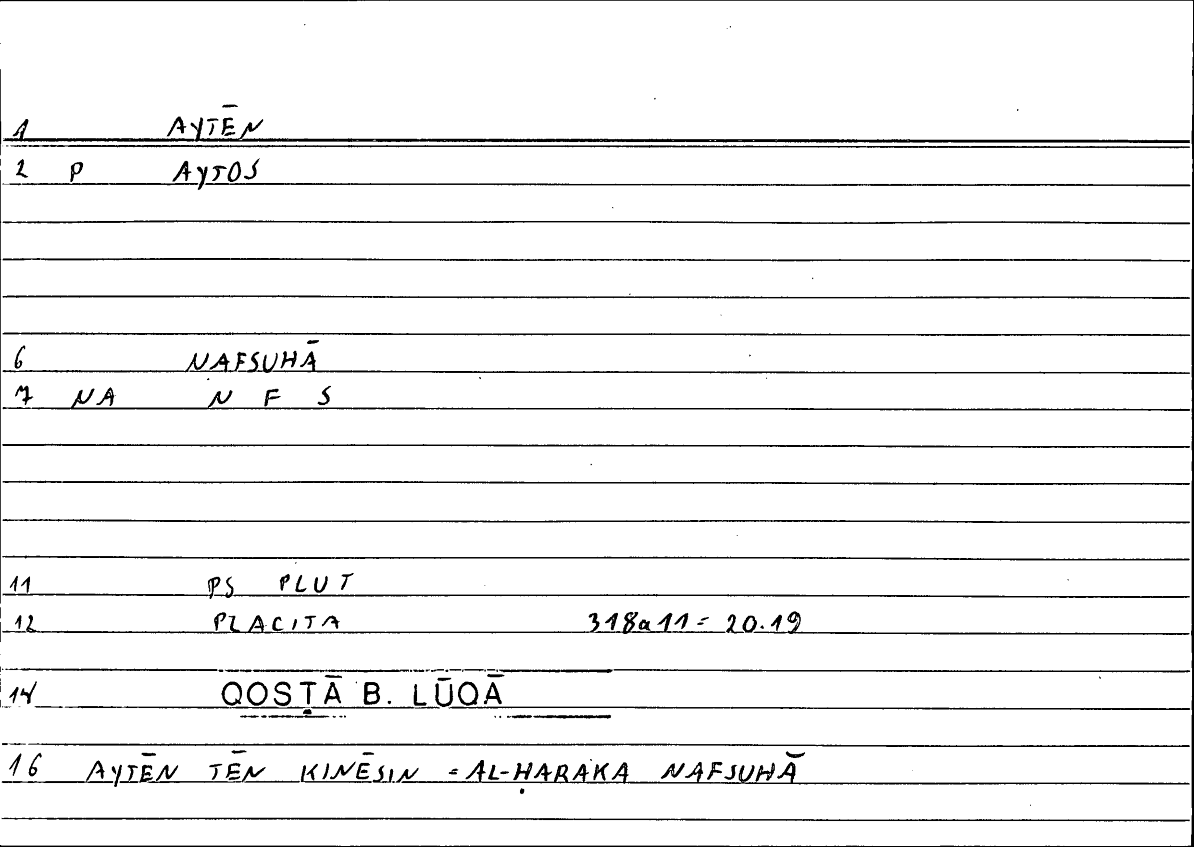 1 AYTĒN
2 P AYTOS
6 NAFSUHĀ
7 NA N F S
11 PS PLUT
12 PLACITA 318a11 = 20.19
14 QOSṬĀ B. LŪQĀ
16 AYTĒN TĒN KINĒSIN = AL-ḤARAKA NAFSUHĀ